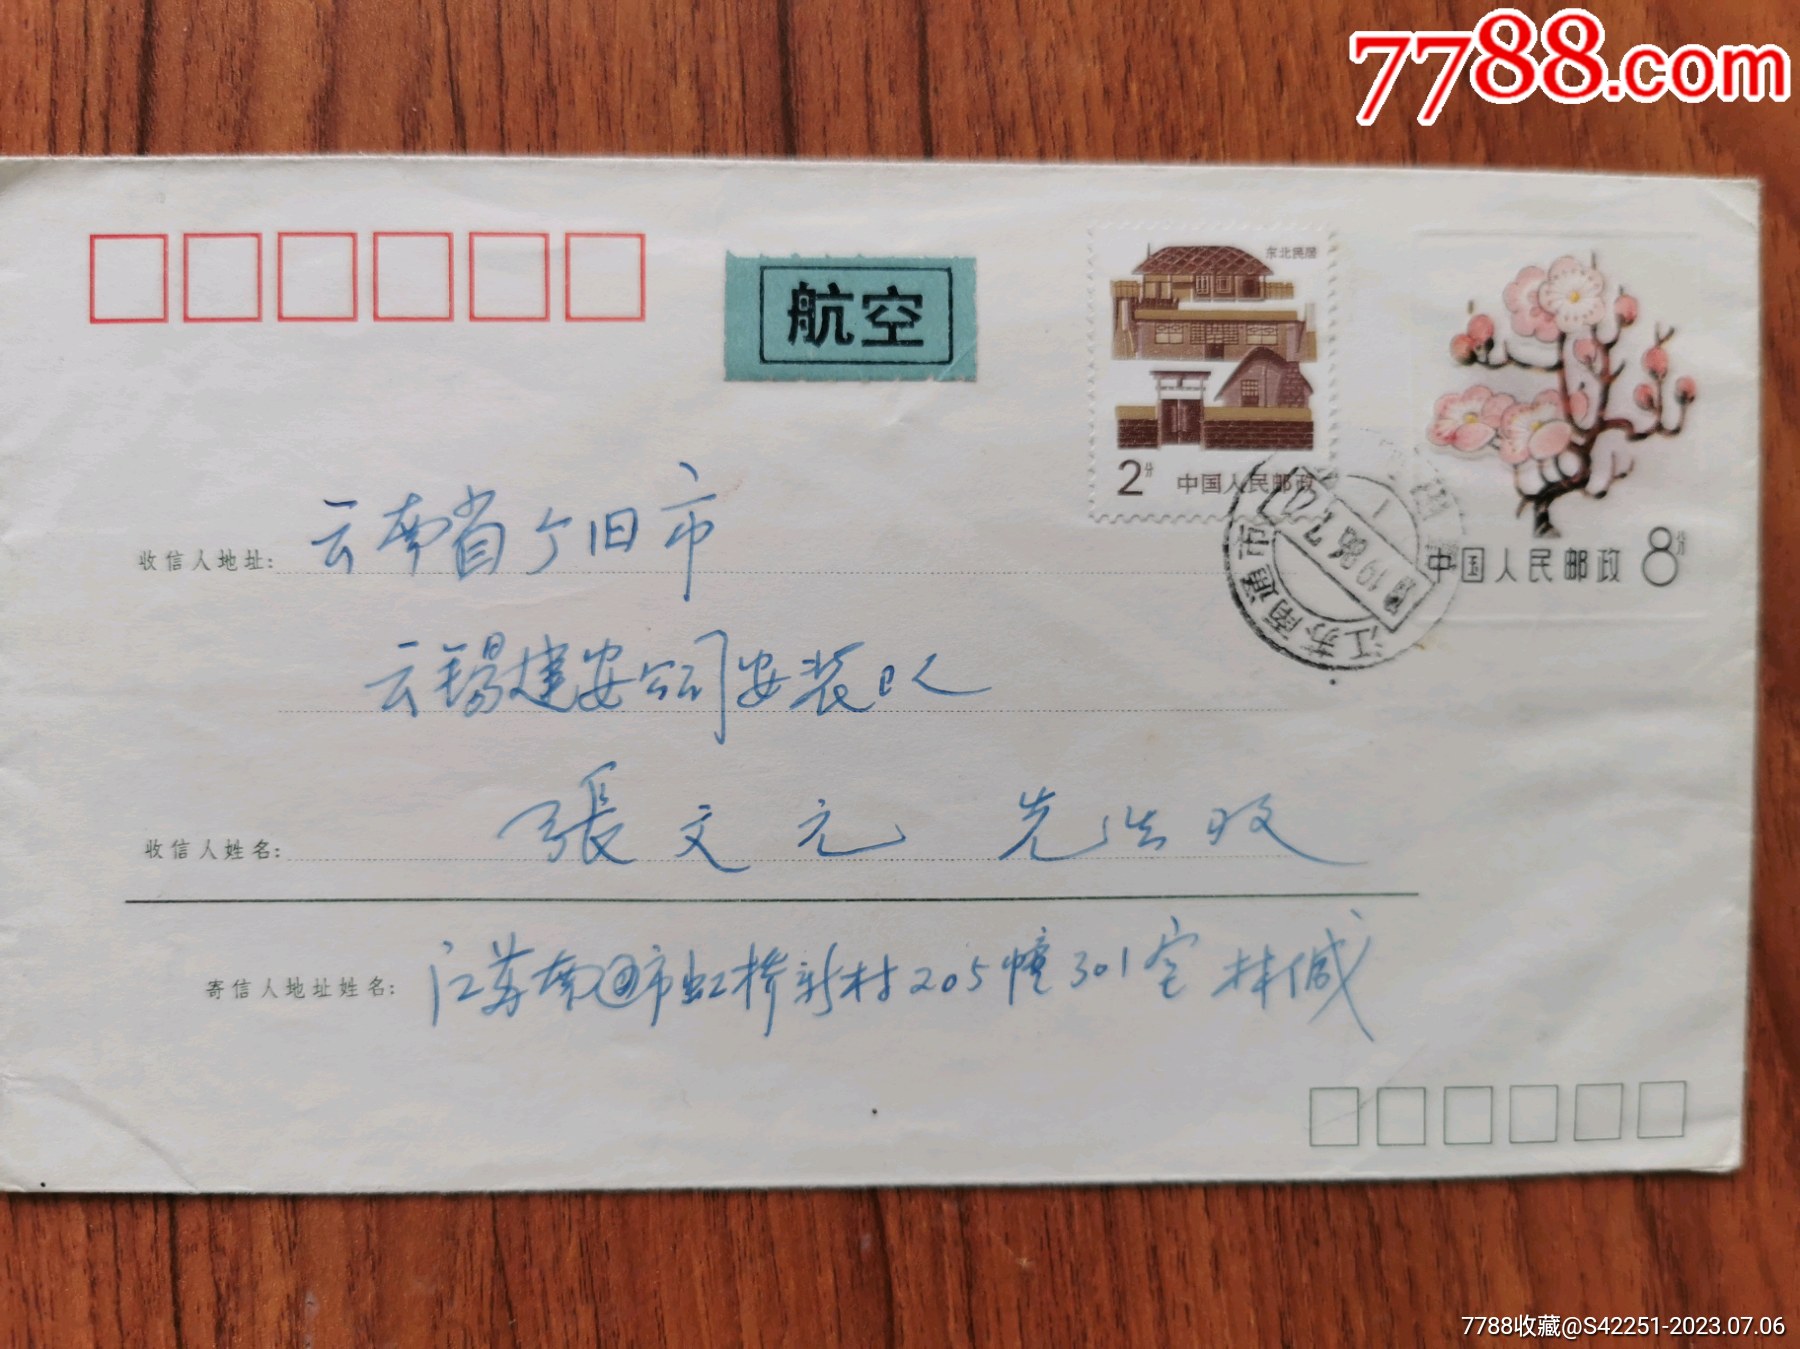 7788.com
航空
东北民居
2分 中国人民邮政
中国人民邮政 8分
江苏南通市
1986.7.
收信人地址: 云南省个旧市
云锡建安公司安装队
收信人姓名: 張文元 先生收
寄信人地址姓名: 江苏南通市虹桥新村205幢301室 林
7788收藏@S42251-2023.07.06